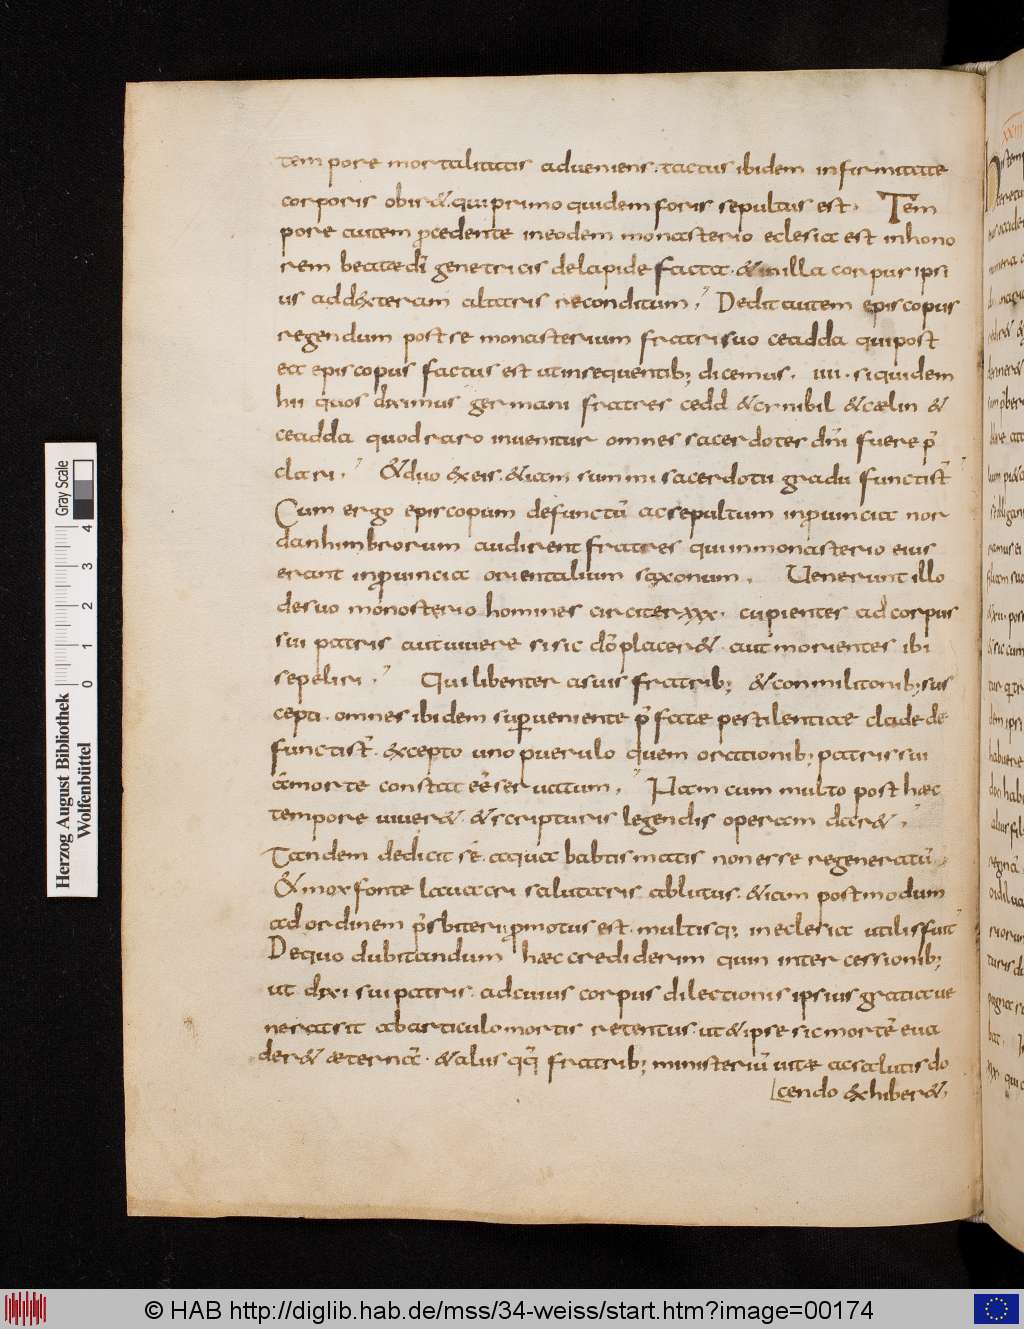 tempore mortalitatis adueniens. tactus ibidem infirmitate
corporis obiit & qui primo quidem foris sepultus est. Tem
pore autem p̄cedente in eodem monasterio eclesia est in hono
rem beatae dī genetricis de lapide facta. & in illa corpus ipsi
us ad dexteram altaris reconditum; Dedit autem episcopus
regendum post se monasterium fratri suo ceadda qui post
ea episcopus factus est ut in sequentib; dicemus. IIII. siquidem
hii quos diximus germani fratres cedd & cynibil & cælin &
ceadda quod raro inuenitur omnes sacerdotes dn̄i fuere p̄
clari; & duo ex eis. & iam summi sacerdotii gradu functi st̄
Cum ergo episcopum defunctū ac sepultum in ꝓuincia nor
danhimbrorum audirent fratres qui in monasterio eius
erant in ꝓuincia orientalium saxonum. Uenerunt illo
de suo monosterio homines circiter xxx. cupientes ad corpus
sui patris aut uiuere si sic dō placer& aut morientes ibi
sepeliri; Qui libenter a suis fratrib; & conmilitonib; sus
cepti. omnes ibidem suꝑueniente p̄fatae pestilentiae clade de
functi st̄. excepto uno puerulo quem orationib; patris sui
a morte constat eē seruatum; Nam cum multo post haec
tempore uiuer& & scripturis legendis operam dar&;
Tandem dedicit sē aqua babtismatis non esse regeneratū
& mox fonte lauacri salutaris ablutus. & iam postmodum
ad ordinem p̄sbiteri ꝓmotus est. multisq; in eclesia utilis fuit
De quo dubitandum haec crediderim quin intercessionib;
ut dixi sui patris. ad cuius corpus dilectionis ipsius gratia ue
nerat sit ab articulo mortis retentus. ut & ipse sic mortē eua
der& æternā. & aliis qq̄ fratrib; ministeriū uitae ac salutis do
cendo exhiber&.
Herzog August Bibliothek
Wolfenbüttel
0 1 2 3 4
Gray Scale
© HAB http://diglib.hab.de/mss/34-weiss/start.htm?image=00174